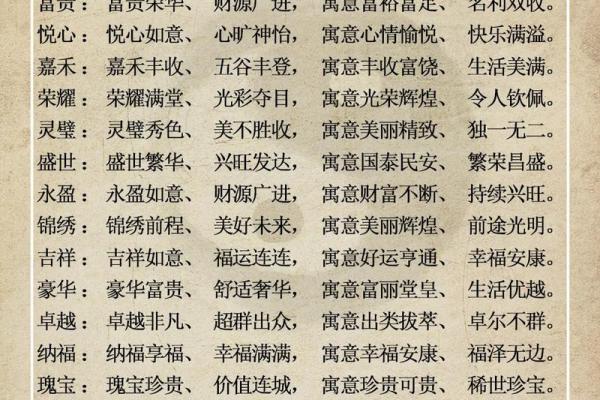 富贵：富贵荣华、财源广进，寓意富裕富足、名利双收。
悦心：悦心如意、心旷神怡，寓意心情愉悦、快乐满溢。
嘉禾：嘉禾丰收、五谷丰登，寓意丰收富饶、生活美满。
荣耀：荣耀满堂、光彩夺目，寓意光荣辉煌、令人钦佩。
灵璧：灵璧秀色、美不胜收，寓意美丽精致、独一无二。
盛世：盛世繁华、兴旺发达，寓意国泰民安、繁荣昌盛。
永盈：永盈如意、财源广进，寓意财富不断、持续兴旺。
锦绣：锦绣前程、美好未来，寓意美丽辉煌、前途光明。
吉祥：吉祥如意、福运连连，寓意好运亨通、幸福安康。
豪华：豪华富贵、舒适奢华，寓意富丽堂皇、生活优越。
卓越：卓越非凡、超群出众，寓意出类拔萃、卓尔不群。
纳福：纳福享福、幸福满满，寓意幸福安康、福泽无边。
瑰宝：瑰宝珍贵、价值连城，寓意珍贵可贵、稀世珍宝。